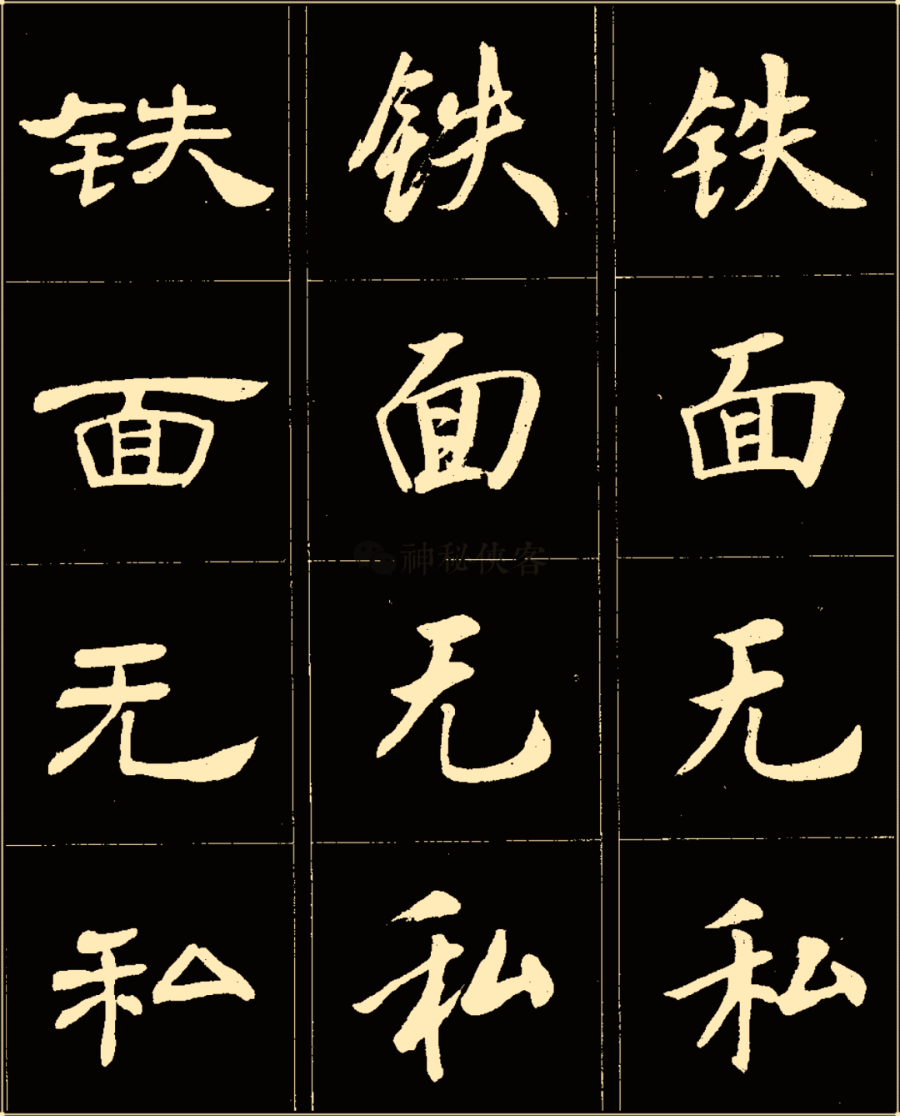 铁 铁 铁
面 面 面
无 无 无
私 私 私
神秘侠客